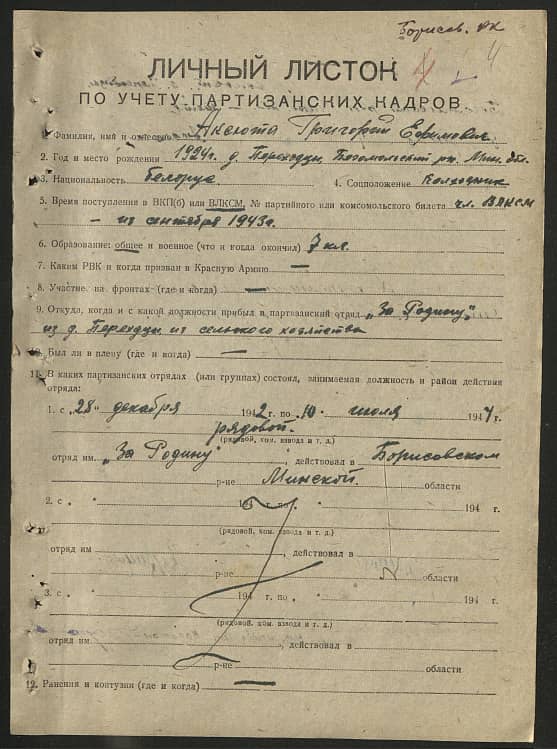 Борисов. РК
4
4
ЛИЧНЫЙ ЛИСТОК
ПО УЧЕТУ ПАРТИЗАНСКИХ КАДРОВ
Фамилия, имя и отчество Аксюта Григорий Ефимович
2. Год и место рождения 1924г. д. Переходцы, Логойский рн. Мин. обл.
3. Национальность белорус 4. Соцположение колхозник
5. Время поступления в ВКП(б) или ВЛКСМ, № партийного или комсомольского билета чл. ВЛКСМ
— из сентября 1943г.
6. Образование: общее и военное (что и когда окончил) 7 кл.
7. Каким РВК и когда призван в Красную Армию —
8. Участие на фронтах (где и когда) —
9. Откуда, когда и с какой должности прибыл в партизанский отряд „За Родину"
из д. Переходцы из сельского хозяйства
10. Был ли в плену (где и когда) —
11. В каких партизанских отрядах (или группах) состоял, занимаемая должность и район действия
отряда:
1. с „28" декабря 1942 г. по „10" июля 1944 г.
рядовой.
(рядовой, ком. взвода и т. д.)
отряд им. „За Родину", действовал в Борисовском
р-не Минской области
2. с „ " 194 г. по „ " 194 г.
(рядовой, ком. взвода и т. д.)
отряд им , действовал в
р-не области
3. с „ " 194 г. по „ " , 194 г.
(рядовой, ком. взвода и т. д.)
отряд им. , действовал в
р-не области
12. Ранения и контузии (где и когда) —